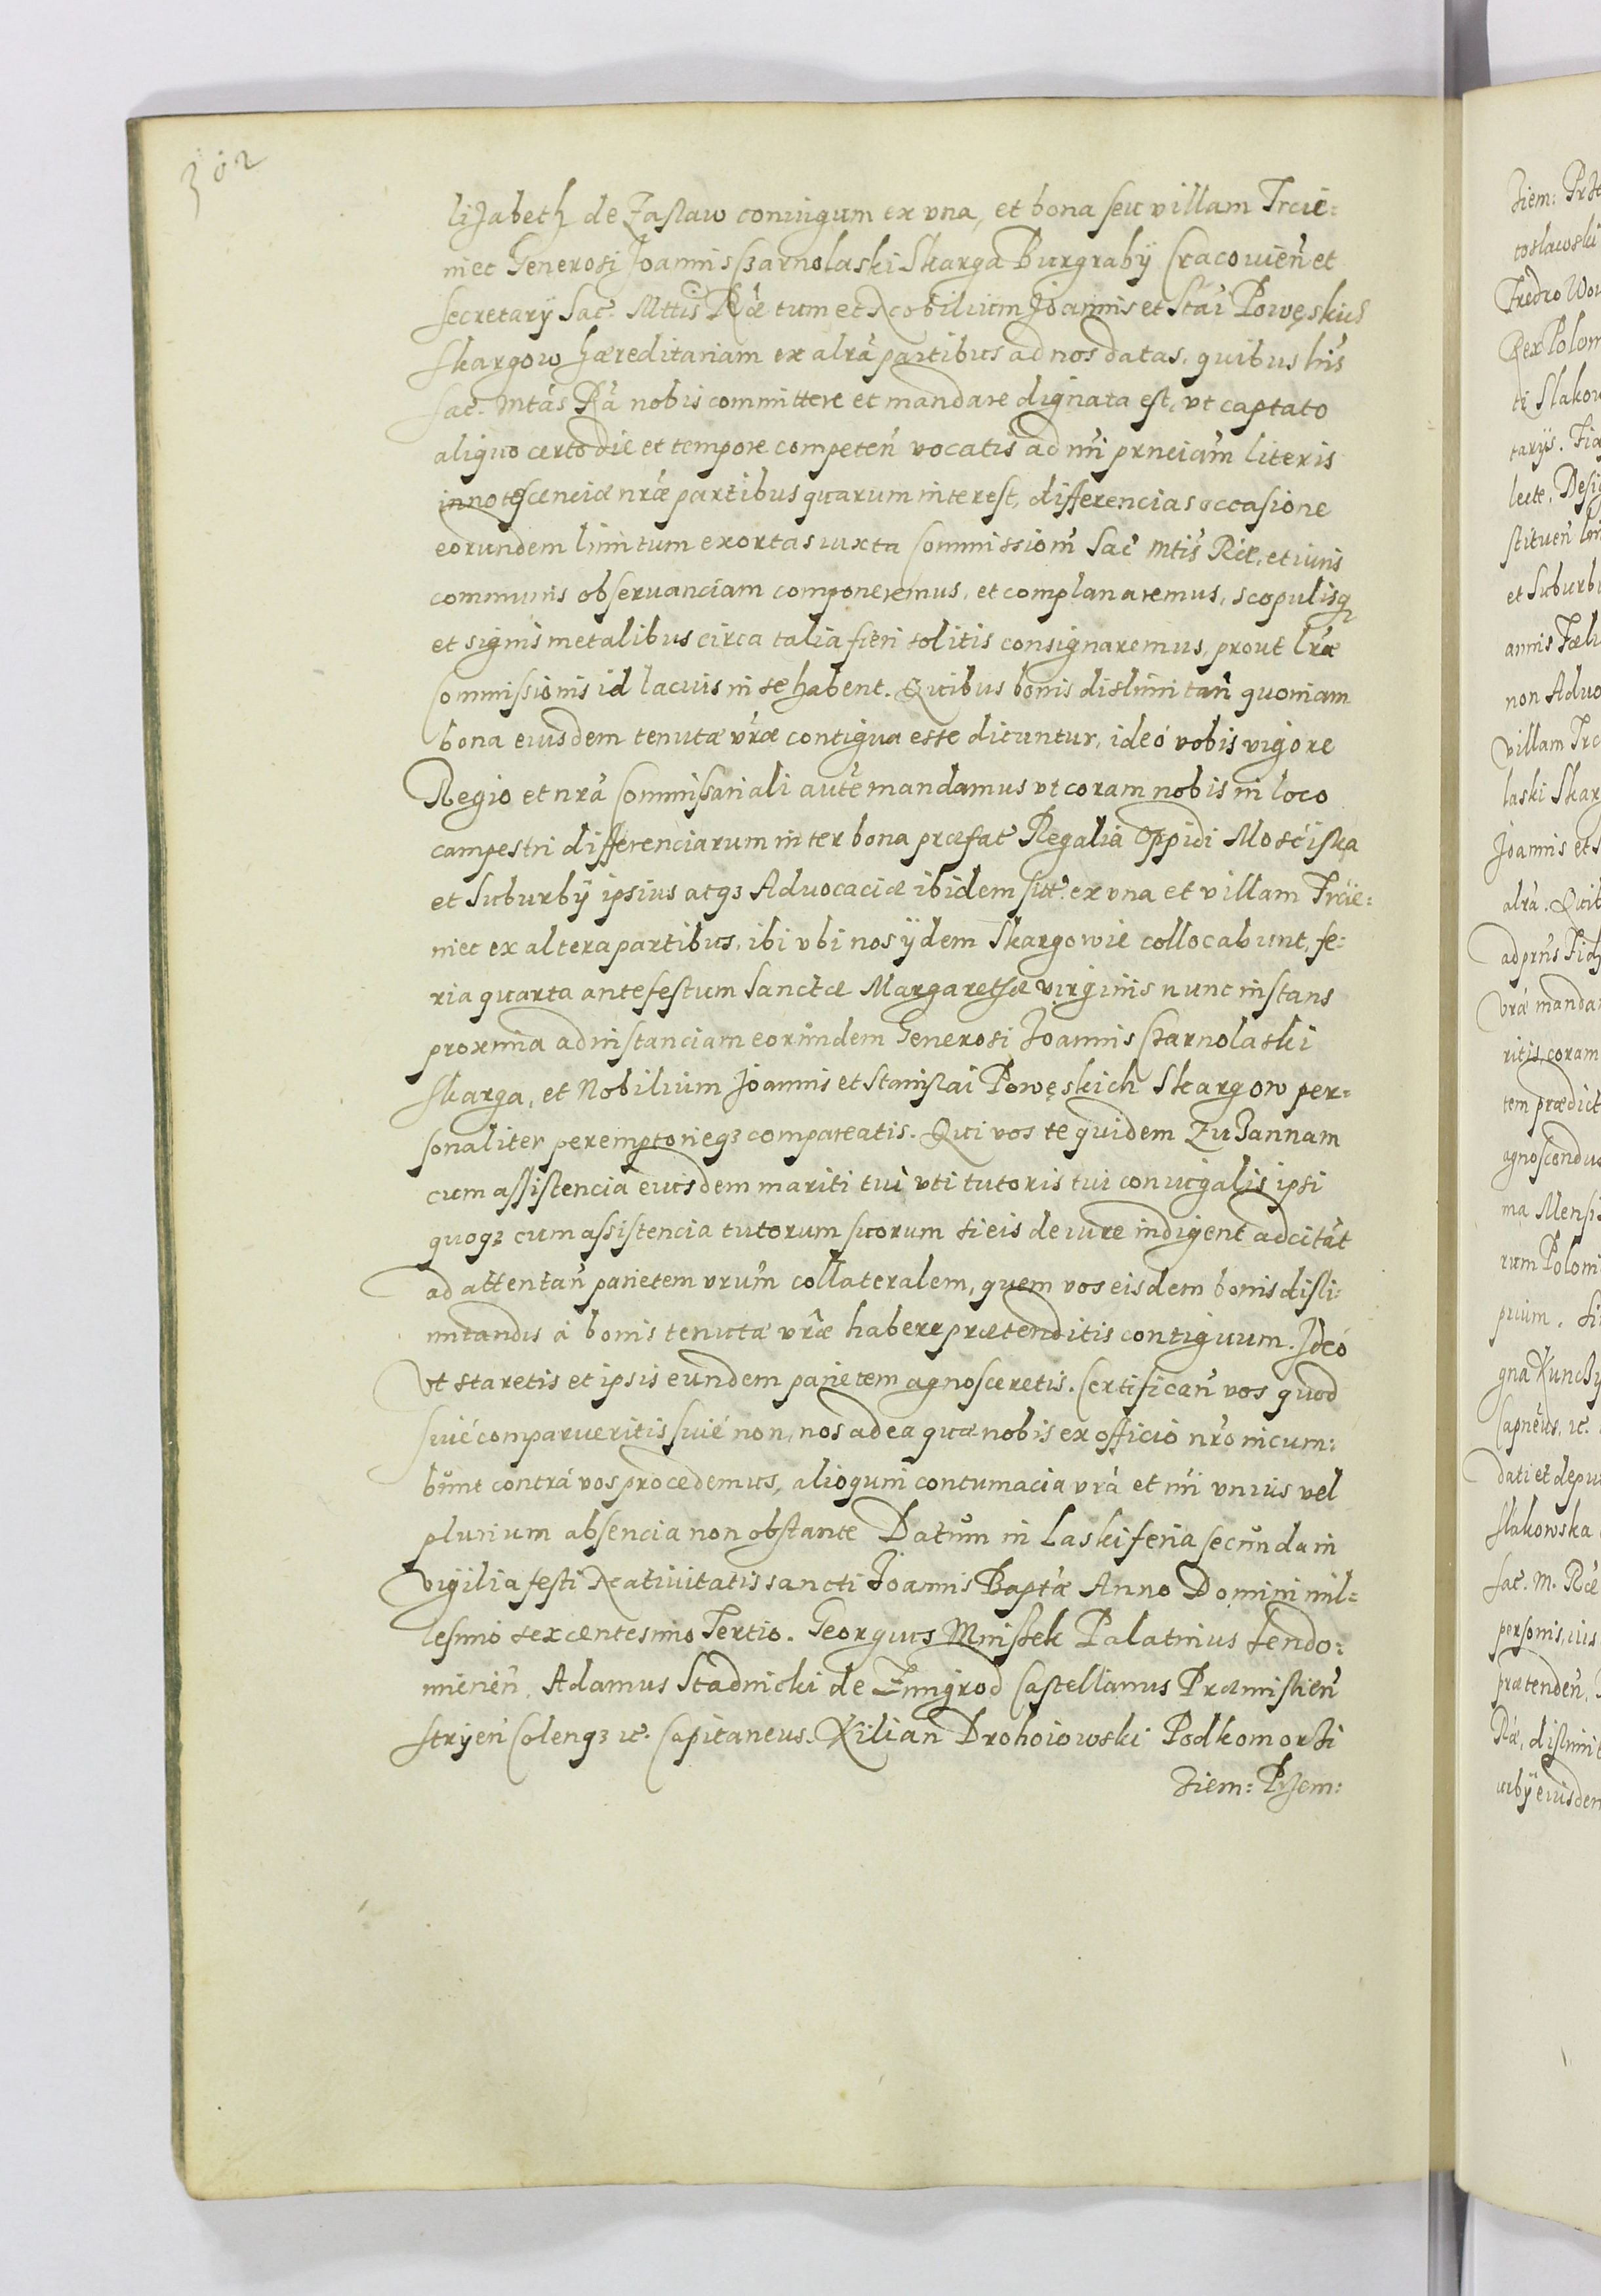 302
lizabeth de Zaslaw coniugum ex vna, et bona seu villam Trcie:
niec Generosi Joannis Czarnolaski Skarga Burgrabÿ Cracouień et
secretarÿ Sac. Mttis Ræ tum et Nobilium Joannis et Stai Powęskich
Skargow hæreditariam ex alrà partibus ad nos datas, quibus lris
sac. mtas Ra nobis committere et mandare dignata est, vt captato
aliquo certo die et tempore competeñ vocatis ad nri prnciam literis
innotescenciæ nræ partibus quarum interest, differencias occasione
eorundem limitum exortas iuxta Commissiom Sac mtis Ræ, et iuris
communis obseruanciam componeremus, et complanaremus, scopulisq
et signis metalibus circa talia fieri solitis consignaremus, prout lræ
Commissionis id lacius in se habent. Quibus bonis dislimitañ quoniam
bona eiusdem tenutæ vræ contigua esse dicuntur, ideó vobis vigore
Regio et nrà Commissariali autte mandamus vt coram nobis in loco
campestri differenciarum inter bona præfat Regalia Oppidi Mościska
et Suburbÿ ipsius atq3 Aduocaciæ ibidem sitt. ex vna et villam Trcie:
niec ex altera partibus, ibi vbi nos ÿdem Skargowie collocabunt, fe:
ria quarta ante festum Sanctæ Margarethæ virginis nunc instans
proxima ad instanciam eorundem Generosi Joannis Czarnolaski
Skarga, et Nobilium Joannis et Stanislai Powęskich Skargow per:
sonaliter peremptorieq3 compareatis. Qui vos te quidem Zuzannam
cum assistencia eiusdem mariti tui vti tutoris tui coniugalis ipsi
quoq3 cum assistencia tutorum suorum si eis de iure indigent adcitat
ad attentañ parietem vrum collateralem, quem vos eisdem bonis disli:
mitandis à bonis tenutæ vræ habere prætenditis contiguum. Ideó
vt staretis et ipsis eundem parietem agnosceretis. Certificañ vos quod
siué comparueritis siué non, nos ad ea quæ nobis ex officio nro incum:
bunt contrá vos procedemus, alioquin contumacia vrà et nri vnius vel
plurium absencia non obstante Datum in Laski feria secunda in
vigilia festi Natiuitatis sancti Joannis Baptæ Anno Domini mil:
lesimo sexcentesimo Tertio. Georgius Mnissek Palatinus Sendo:
mirień, Adamus Stadnicki de Zmigrod Castellanus Præmislień
strÿeń Colenq3 ic. Capitaneus. Kilian Drohoiowski Podkomorzi
Ziem: Przem: